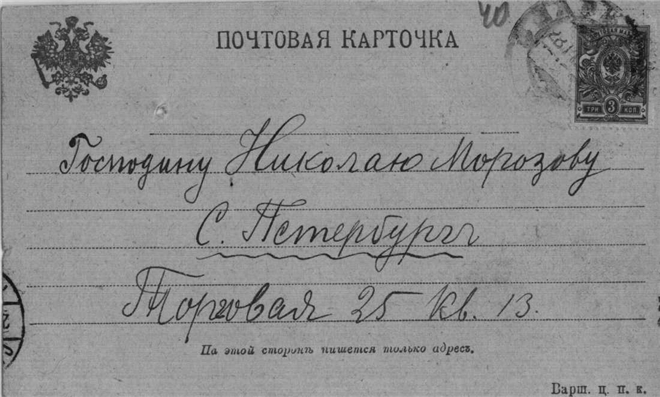 40
ПОЧТОВАЯ КАРТОЧКА
3
ТРИ КОП
Господину Николаю Морозову
С. Петербургъ
Торговая 25 кв. 13.
На этой сторонѣ пишется только адресъ.
Варш. ц. п. к.